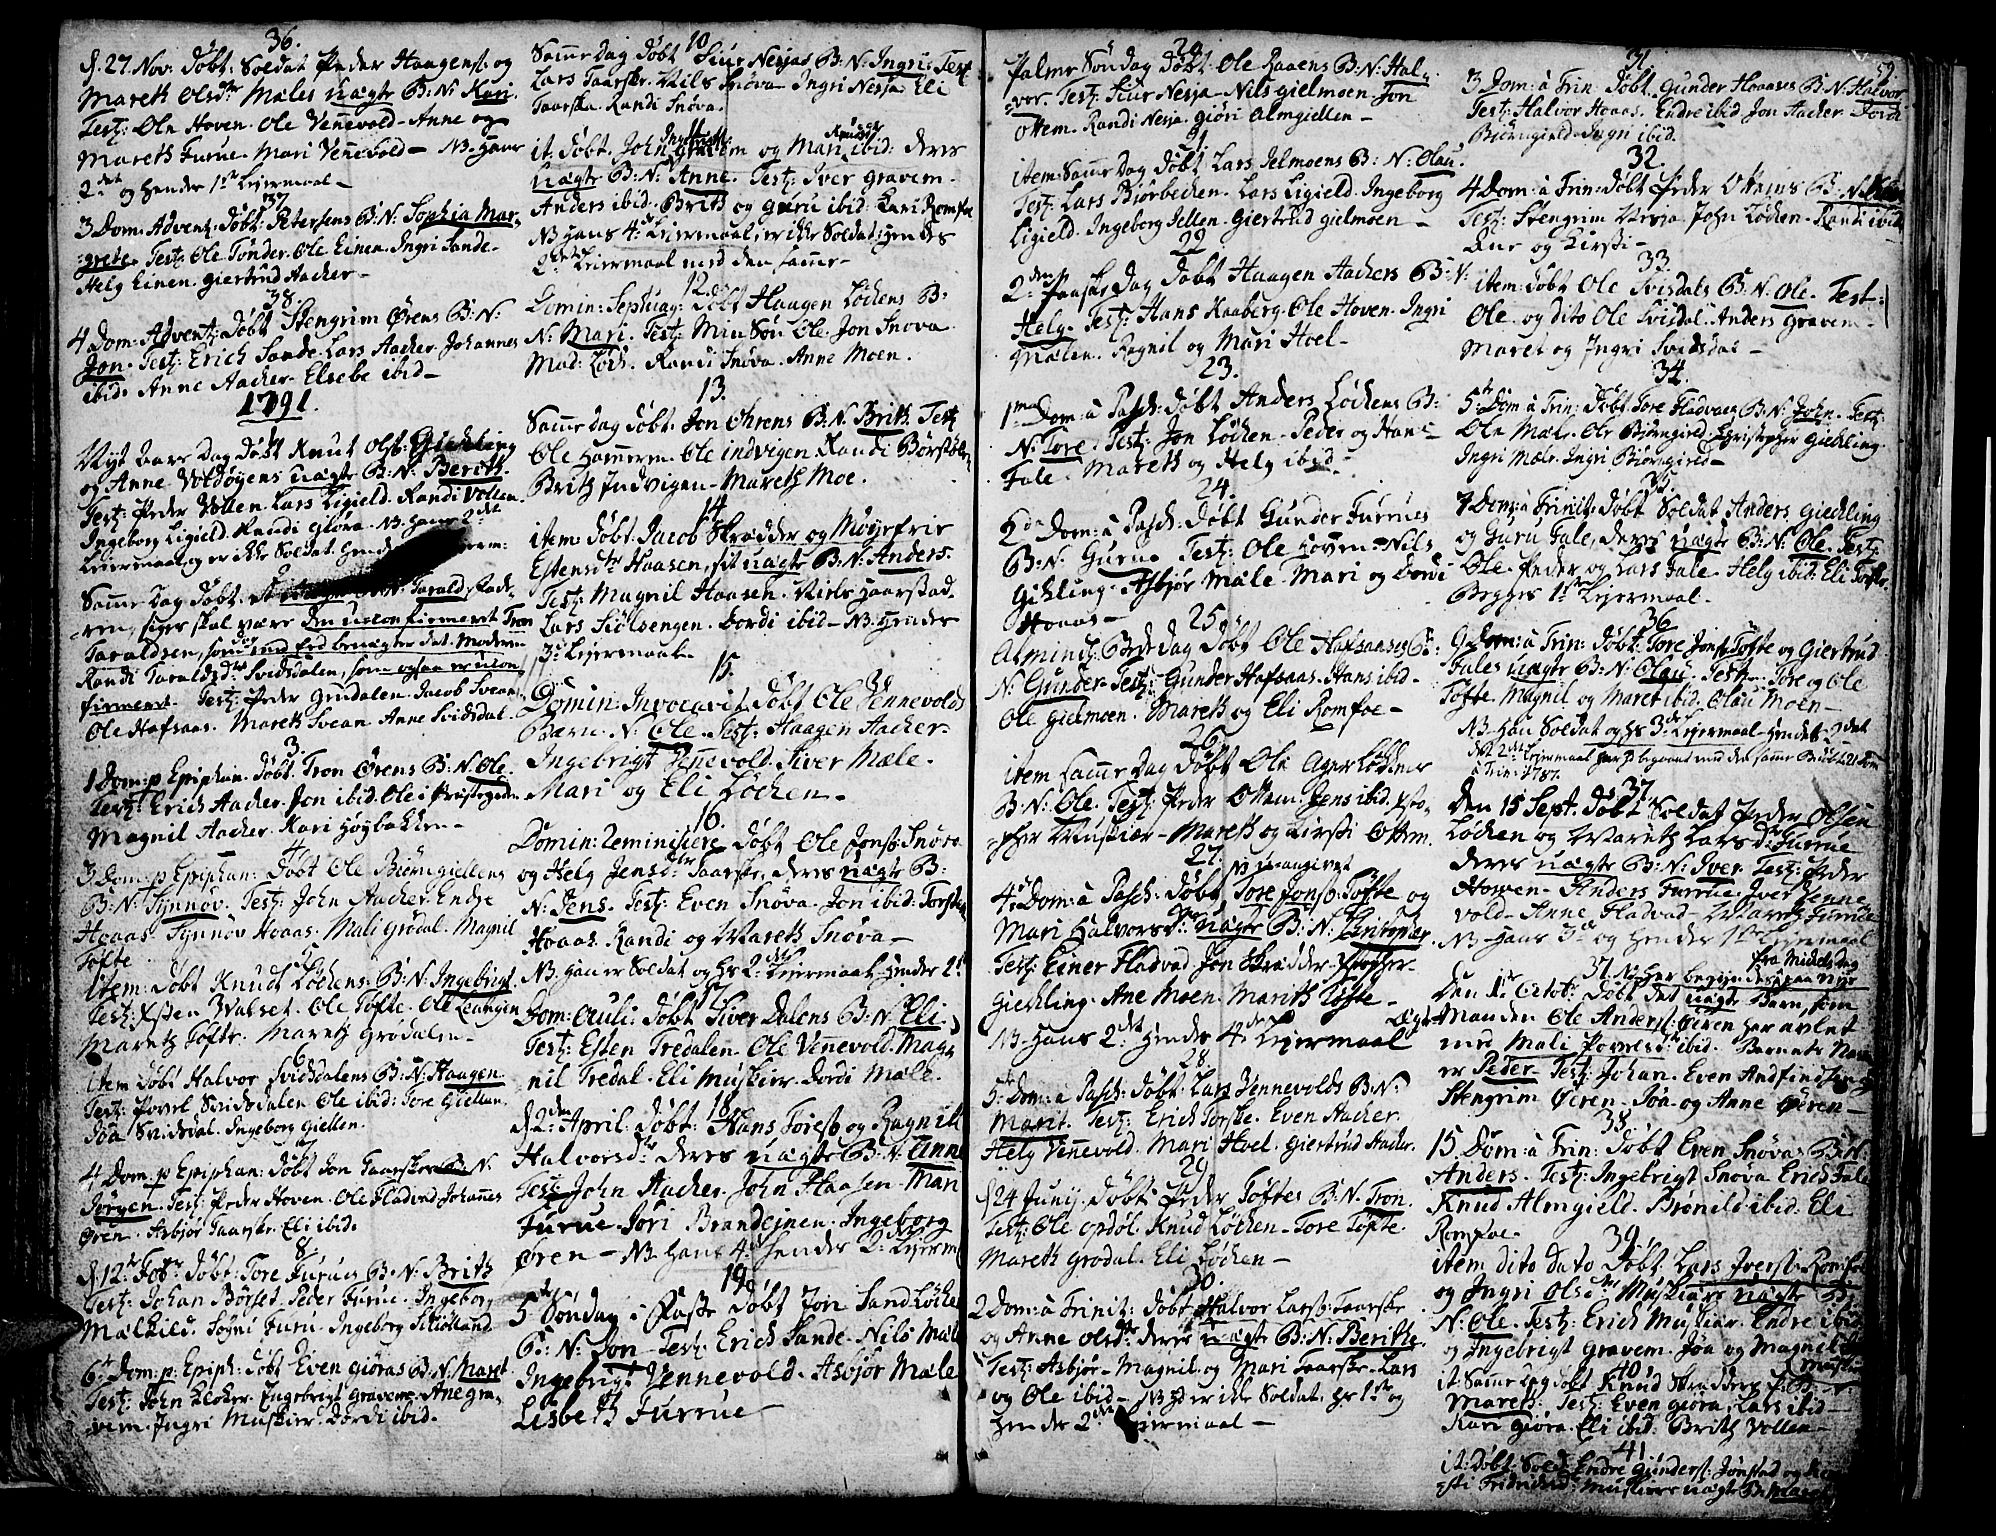 36.
d: 27. Nov: døbt: Soldat Peder Haagens: og
Mareth Olsdtr Mæles uægte B: N: Kari.
Test: Ole Hoven. Ole Vennevold - Anne og
Mareth Furue. Mari Vennevold - NB: Hans
2det og Hendes 1ste Lejermaal -
37
3 Dom: Advent: døbt: Petersens B: N: Sophia Mar-
grete. Test: Ole Tønder. Ole Einen. Ingri Sande.
Helg Einen. Giertrud Aacher -
38.
4 Dom: Advent: døbt Stengrim Ørens B: N:
Jon. Test: Erich Sande. Lars Aacher. Johannes
ibid. Anne Aacher. Elsebe ibid -
1791.
1
Nyt Aars Dag døbt Knut Ols: Gichling
og Anne Voldøyens uægte B: N: Berith.
Test: Peder Vollen. Lars Ligield. Randi Vollen.
Ingeborg Ligield. Randi Giøra. NB. Hans 2det
Leiermaal, og er ikke Soldat. Hendes
2
Samme Dag døbt: et uægte B: N: Tarald, Fad-
ren, siges skal være den uconfirmeret Tron
Taraldsen, som dog med Eed benægter det. Moderen
Randi Taraldsdtr Svidsdalen, som ogsaa er ucon-
firmeret. Test: Peder Grødalen. Jacob Svean.
Ole Hafsaas. Mareth Svean. Anne Svidsdal.
3.
1 Dom: p Epiphan. døbt: Tron Ørens B: N: Ole.
Test: Erich Aacher. Jon ibid. Ole i Præstegarden
Magnil Aacher. Kari Høybakken -
4
3 Dom: p Epiphan: døbt Ole Biørngiellens
B: N: Synnøv. Test: John Aacher. Endre
Hoaas. Synnøv Hoaas. Mali Grødal. Magnil
Tøfte
5
Item: døbt Knudt Løchens. B: N: Ingebrigt.
Test: Esten Walset. Ole Tøfte. Ole Langen
Mareth Tøfte. Mareth Grødalen -
6
Item døbt Halvor Svidsdalens B: N: Haagen.
Test: Povel Svidsdalen Ole ibid: Tore Giellen.
Joa Svidsdal. Ingeborg Giellen.
7
4 Dom: p Epiphan: døbt Jon Taarskes B: N:
Jørgen. Test: Peder Hoven. Ole Fladvad. Johannes
Øren. Asbjør Taarske. Eli ibid.
8
d: 12te Febr: døbt: Tore Furues B: N: Brith
Test: Johan Børset. Peder Furue. Ingeborg
Mælkild. Segni Furu. Ingeborg
6te Dom: p: Epiph: døbt Even Giøras B: N: Maret
Test: John Klokker. Engebrigt Gravem. Ane Gra-
vem. Ingri Muskier. Dordi ibid.
10
Samme Dag døbt Siur Nesjas B: N: Ingri: Test
Lars Taarske. Niels Snøva. Ingri Nesja Eli
Taarske. Randi Snøva.
11
it: døbt. John Ingebrigts: Gravem og Mari Knudsdr ibid: deres
uægte B: N: Anne. Test: Iver Gravem.
Anders ibid. Brith og Guru ibid. Kari Romfoe
NB Hans 4de Lejermaal, er ikke Soldat: Hendes
2det Leiermaal med den samme -
12.
Domin: Septuag: døbt Haagen Løchens B:
N: Mari. Test: Min Søn Ole. Jon Snøva.
Mad: Løch. Randi Snøva. Anne Moen.
13.
Samme dag døbt. Jon Ohrens B: N. Brith. Test
Ole Hammern. Ole Indvigen. Randi Børsthølen
Brith Indvigen - Mareth Moe.
14
item: døbt. Jacob Skrædder og Møyefrie
Estensdtr Hoaasen, sit uægte B: N: Anders.
Test: Magnil Hoaasen. Niels Haarstad.
Lars Siølsengen. Dordi ibid - NB: Hendes
3de Lejermaal -
15.
Domin: Invocavit døbt Ole Vennevolds
Barn: N: Ole. Test: Haagen Aacher.
Ingebrigt Vennevold. Siver Mæle.
Mari og Eli Løchen -
16.
Domin: Reminiscere døbt Ole Jons: Snøva
og Helg Jensdtr Taarske, deres uægte B:
N: Jens. Test: Even Snøva. Jon ibid: Torsten
Hoaas. Randi og Mareth Snøva -
NB. Han er Soldat og Hs 2det Lejermaal - Hendes 2det
17
Dom: Oculi: døbt Siver Dalens B: N: Eli,
Test: Esten Tredalen. Ole Vennevold. Mag-
nil Tredal. Eli Muskier. Dordi Mæle.
18
d: 2den April. døbt: Hans Tores: og Ragnil
Halvorsdtr deres uægte B: N: Anne
Test: John Aacher. John Haasen. Mari
Furue. Jori Brandejnen. Ingeborg
Øren - NB. Hans 4de Hendes 2det Lejerm:
19
5te Søndag i Faste døbt Jon Sandløchen
B: N: Jon - Test: Erich Sande. Nils Mæle
Ingebrigt Vennevold. Asbjør Mæle
Lisbeth Furrue -
20.
Palme Søndag døbt. Ole Raaens B: N: Hal-
vor. Test: Siur Nesja. Nils Gielmoen. Jon
Ottem. Randi Nesja. Giøri Almgiellen -
21
item: Samme Dag døbt Lars Jelmoens B: N: Olau.
Test: Lars Biørbechen. Lars Ligield. Ingeborg
Ligield. Ingeborg Jellen. Giertrud Gielmoen -
22
2den Paaske Dag døbt Haagen Aachers B: N.
Helg. Test: Hans Raaberg. Ole Hoven. Ingri
Mælen. Ragnil og Mari Hoel -
23.
1ma Dom: a Pasch: døbt Anders Løchens B:
N: Tore. Test: Jon Løchen. Peder og Hans
Fale. Mareth og Helg ibid. -
24.
2da Dom: a Pasch: døbt Gunder Furrues
B: N: Gurue. Test: Ole Hoven. Nils
Gikling. Asbjør Mæle. Mari og Dordi
Hoaas -
25.
Almind: Bede Dag døbt Ole Hafsaases B:
N: Gunder - Test: Gunder Hafsaas. Hans ibid -
Ole Gielmoen. Mareth og Eli Romfoe -
26.
item Samme Dag døbt Ole Agerløkkens
B: N: Ole. Test: Peder Ottem. Jens ibid. Xsto-
pher Muskier - Mareth og Kirsti Ottem.
27.
4de Dom: a Pasch: døbt, Tore Jons: Tøfte og
Mari Halvorsdr uægte B: N: Christopher
Test: Einer Fladvad. Jon Skrædder. Xstopher
Giechling. Ane Moen. Marith Tøfte -
NB Hans 2det Hendes 4de Lejermaal Ægte
28.
5te Dom: a Pasch: døbt: Lars Vennevolds B: N:
Marit. Test: Erich Torske. Even Aacher.
Helg Vennevold. Mari Hoel. Giertrud Aacher.
29
d 24 Junij. døbt: Peder Tøftes B: N. Tron.
Test: Ole Opdøl. Knud Løchen - Tore Tøfte.
Mareth Grødal. Eli Løchen -
30.
2 Dom: a Trinit: døbt Halvor Lars: Taarske
og Anne Olsdtr deres uægte B: N: Berithe.
Test: Asbjør - Magnil og Mari Taarske. Lars
og Ole ibid - NB Hand er ikke Soldat. Hs 1ste og
Hendes 2det Leiermaal -
52.
31.
3 Dom: a Trin: døbt. Gunder Hoaases B: N: Halvor
Test: Halvor Hoaas. Endre ibid. Jon Aacher. Dordi
Biørngield. Ingri ibid.
32.
4 Dom: a Trin: døbt Peder Ottems B: N:
Test: Stengrim Nesja. John Løchen. Randi ibid.
Ane og Kirsti -
33.
item: døbt Ole Svisdals B: N: Ole. Test:
Ole. og dito Ole Svisdal. Anders Gravem -
Maret og Ingri Svidsdal -
34.
5te Dom: a Trin: døbt Tore Fladvaen B: N: John. Test
Ole Mæle. Ole Biørngield. Christopher Giechling
Ingri Mæle. Ingri Biørngield -
35.
7 Dom: a Trinit: døbt Soldat Anders Giechling
og Guru Fale, deres uægte B: N: Ole. Test:
Ole. Peder og Lars Fale. Helg ibid. Eli Tofte.
Begges 1ste Lejermaal.
36
9 Dom: a Trin: døbt. Tore Jons: Tøfte og Giertrud
Fales uægte B: N: Olau. Test: Tore og Ole
Tøfte. Magnil og Maret ibid. Olau Moen -
NB. Han Soldat og Hs 3de Lejermaal - Hendes 2det
det 2det Lejermaal har hand begaaet med den samme
a Trin: 1787.
37
Den 15 Sept. døbt Soldat Peder Olsen
Løchen og Mareth Larsd: Furrue
deres uægte B: N: Iver. Test: Peder
Hoven. Anders Furrue. Iver Venne
vold. Anne Fladvad. Mareth Furrue
NB. Hans 3de og Hendes 1ste Lejermaal
37. NB her begyndes paa nye fra Michelsdag
Den 1ste Octobr: døbt det uægte Barn, som
Manden Ole Anders: Øren har avlet
med Mali Povelsd: ibid. Barnets Navn
er Peder. Test: Johan. Even Andfinds
Stengrim Øeren. Joa og Anne Øeren -
38
15 Dom: a Trin: døbt Even Snøvas B: N:
Anders. Test: Ingebrigt Snøva Erich Fale
Knud Almgield. Brønild ibid. Eli
Romfoe.
39
item dito dato døbt Lars Ivers: Romfoe
og Ingri Olsdtr Muskiers uægte B:
N: Ole. Test: Erich Muskier. Endre ibid
og Ingebrigt Gravem. Joa og Magnil
40
it: Samme Dag døbt Knud Skrædders B: N.
Mareth. Test: Even Giøra. Lars ibid -
Kari Giøra. Eli ibid: Brith Vollen -
41
it: døbt: Sold Endre Gunders: Jønstad og
sti Fridrichsd: Muskiers uægte B: